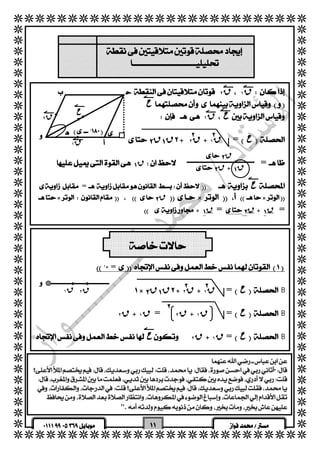 إيجاد محصلة قوتين متلاقيتين فى نقطة
تحليليـــا
إذا كان : ق١ ، ق٢ قوتان متلاقيتان فى النقطة
( و ) وقياس الزاوية بينهما ى وأن محصلتهما ع
وقياس الزاوية بين ع ، ق١ هى هـ فإن :
الحصلة ( ع ) = √ق١² + ق٢² + ٢ ق١ ق٢ حتاى
حـ
ب
ع
ق٢
( ١٨٠ – ى )
هـ
ى
و
ق١
أ
ظاهـ = ق٢ حاى / ق١ + ق٢ حتاى
لاحظ أن : ع هى القوة التى يميل عليها
المحصلة ع بزاوية هـ (( لاحظ أن : بسط القانون هو مقابل زاوية هـ = مقابل زاوية ى
((الوتر × حاهـ )) أ، (( الوتر × حاى (( ق٢ حاى )) ، (( مقام القانون : الوتر × حتاهـ
= ق١ + ق٢ حتاى = ق١ + مجاور زاوية ى ))
حالات خاصة
( ١ ) القوتان لهما نفس خط العمل وفى نفس الإتجاه (( ى = ٠° ))
الحصلة ( ع ) = √ق١² + ق٢² + ٢ ق١ ق٢ × ١
و
ق١
ق٢
الحصلة ( ع ) = √( ق١ + ق٢ )² = ق١ + ق٢
الحصلة ( ع ) = ق١ + ق٢ وتكون ع لها نفس خط العمل وفى نفس الإتجاه
عن ابن عباس - رضي الله عنهما
قال: "أتاني ربي في أحسن صورة، فقال: يا محمد، قلت: لبيك ربي وسعديك، قال: فيم يختصم الملأ الأعلى؟
قلت: ربي لا أدري، فوضع يده بين كتفي، فوجدت بردها بين ثديي، فعلمت ما بين المشرق والمغرب، قال:
يا محمد، فقلت لبيك ربي وسعديك، قال: فيم يختصم الملأ الأعلى؟ قلت: في الدرجات، والكفارات، وفي
نقل الأقدام إلى الجماعات، وإسباغ الوضوء في المكروهات، وانتظار الصلاة بعد الصلاة، ومن يحافظ
عليهن عاش بخير، ومات بخير، وكان من ذنوبه كيوم ولدته أمه . "
مستر / محمد فواز
١١
موبايل ٣٦٩ ٠٥ ٩٩ ٠١١١